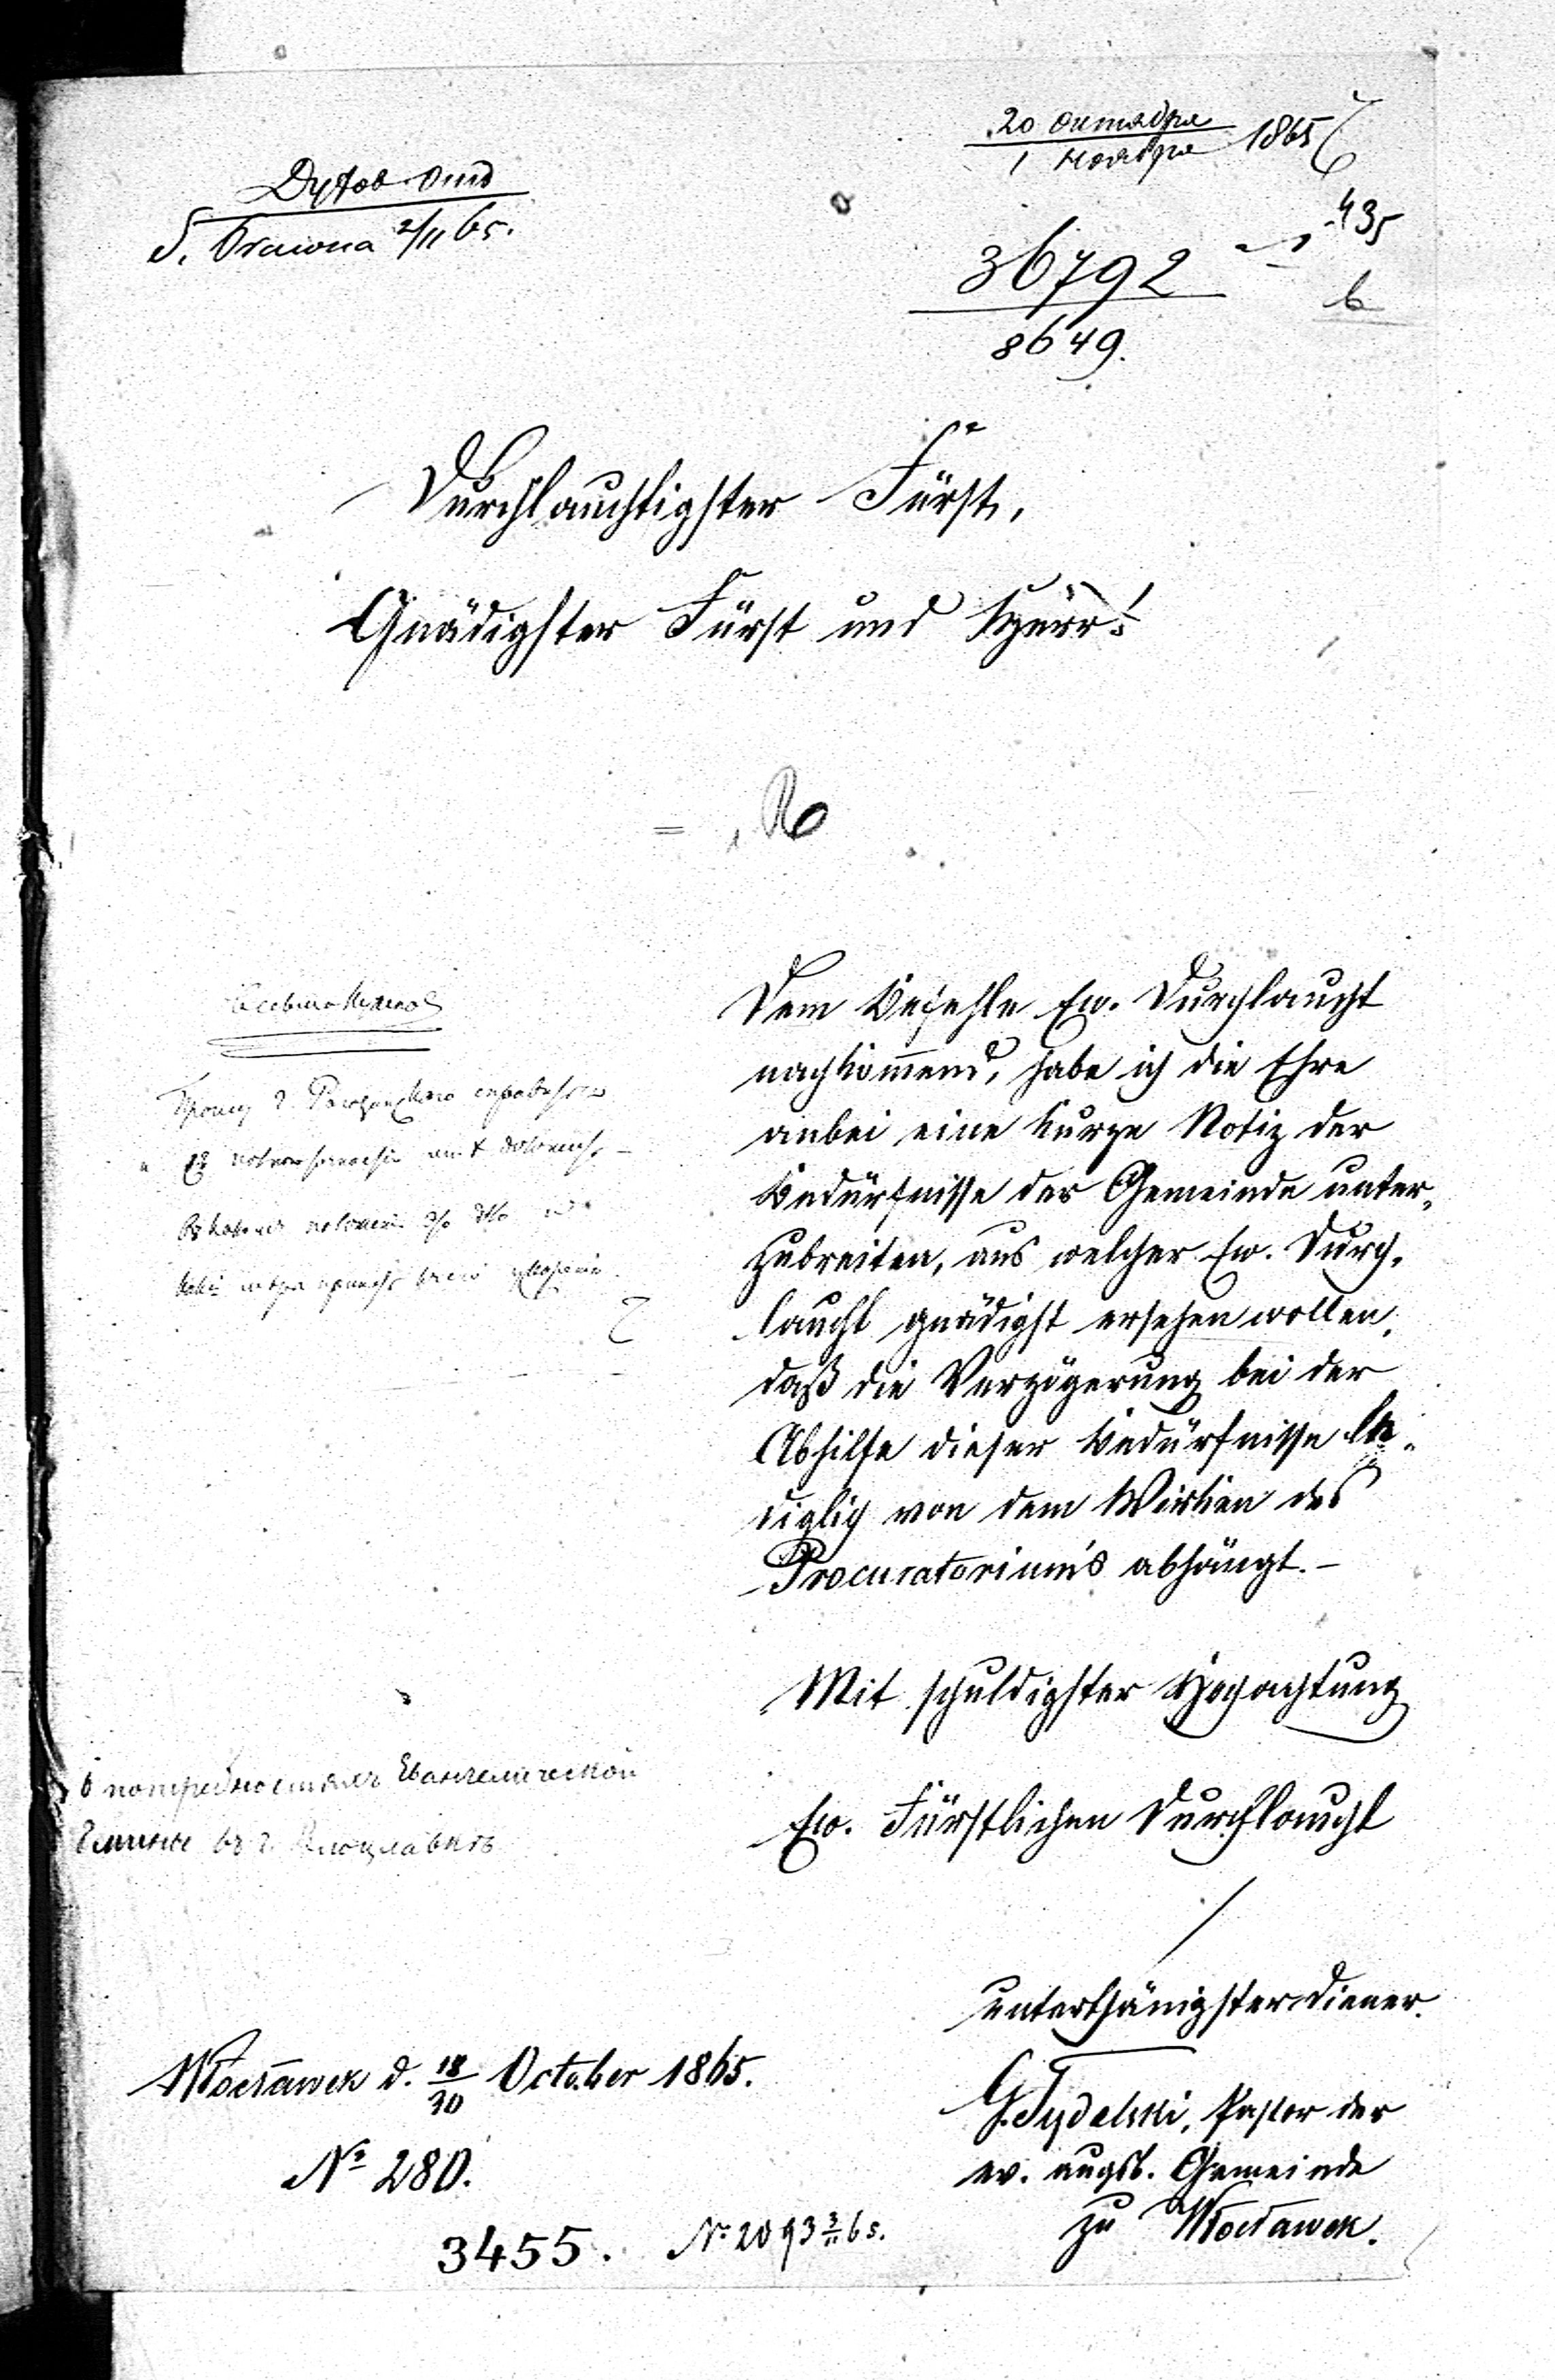 20 октября
1 ноября 1865
Духов. Отд
2/11 65.
435
36792
6
8649.
Durchlauchtigster Fürst,
Gnädigster Fürst und Herr!
Dem Befehle Ew. Durchlaucht
nachkommend, habe ich die Ehre
anbei eine kurze Notiz der
Bedürfnisse der Gemeinde unter„
zubreiten, aus welcher Ew. Durch„
laucht gnädigst ersehen wollen,
daß die Verzögerung bei der
Abhilfe dieser Bedürfnisse le„
diglich von dem Wirken des
Procuratorium's abhängt. –
Mit schuldigster Hochachtung
Ew. Fürstlichen Durchlaucht
Прошу г.
О потребностях Евангелической
Гмины въ г. Влоцлавкѣ
unterthänigster Diener.
G. Tydelski, Pastor der
ev. augsb. Gemeinde
zu Włocławek.
Włocławek d. 18/30 October 1865.
№ 280.
3455.
№ 2093 3/11 65.